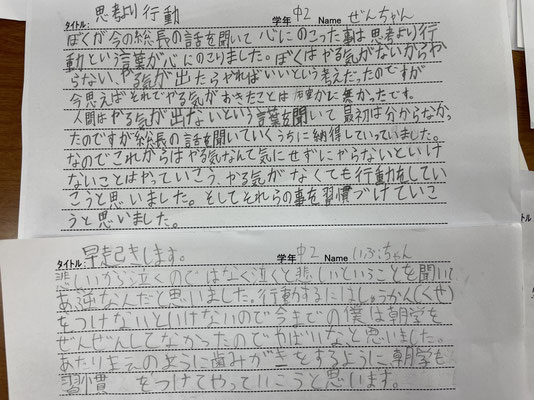 タイトル: 思考より行動 学年 中2 Name ぜんちゃん
ぼくが今の総長の話を聞いて心にのこった事は思考より行
動という言葉が心にのこりました。ぼくはやる気がないからや
らない、やる気が出たらやればいいという考えだったのですが
今思えばそれでやる気がおきたことは確かに無かったです。
人間はやる気が出ないという言葉を聞いて最初は分からなかっ
たのですが総長の話を聞いていくうちに納得していっていました。
なのでこれからはやる気なんて気にせずにやらないといけ
ないことはやっていこう、やる気がなくても行動をしてい
こうと思いました。そしてそれらの事を習慣づけていこ
うと思いました。
タイトル: 早起きします。 学年 中2 Name いぶちゃん
悲しいから泣くのではなく泣くと悲しいということを聞いて
あ、逆なんだと思いました。行動するにはしゅうかん(くせ)
をつけないといけないので今までの僕は朝学を
ぜんぜんしてなかったのでやばいなと思いました。
あたりまえのように歯みがきをするように、朝学も
習慣 をつけてやっていこうと思います。